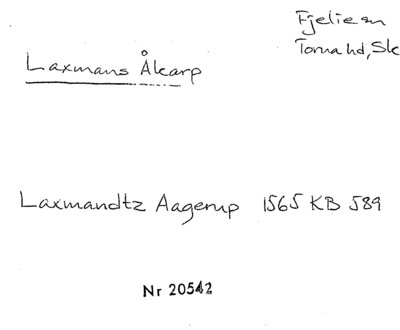 Fjelie sn
Torna hd, Sk
Laxmans Åkarp
Laxmandtz Aagerup 1565 KB 589
Nr 20542